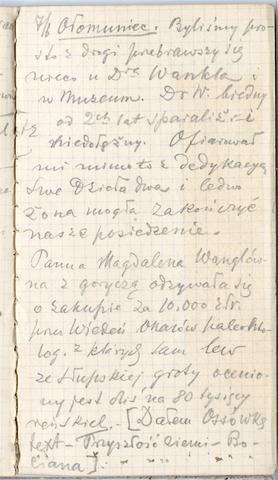 7/6 Ołomuniec. Byliśmy pro-
sto z drogi przebrawszy się
nieco u Dra Wankla i
w Muzeum. Dr W. biedny
od 2ch lat sparaliż. i
niedołężny. Ofiarował
mi mimo to z dedykacją
swe Dzieła dwa i ledwo
żona mogła zakończyć
nasze posiedzenie.
Panna Magdalena Wanklów-
na z goryczą odzywała się
o zakupie za 10.000 złr.
przez Wiedeń okazów paleonto-
log. z których sam lew
ze słupskiej groty ocenio-
ny jest dziś na 80 tysięcy
reńskich. [Dałem Ossówką
text - Przyszłość ziemi - Bo-
ciana].